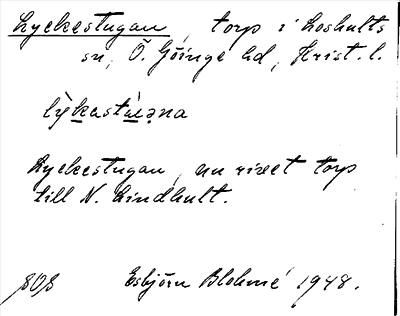 Lyckestugan, torp i Loshults
sn, Ö. Göinge hd, Krist. l.
lỳkastùəna
Lyckestugan, nu rivet torp
till N. Lindhult.
Esbjörn Blohmé 1948.